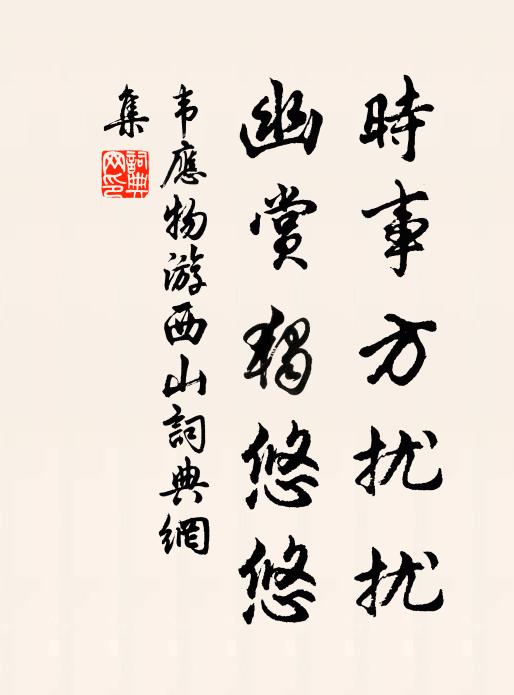 時事方扰扰
幽赏獨悠悠
韦應物游西山詞典網
集
詞典网印